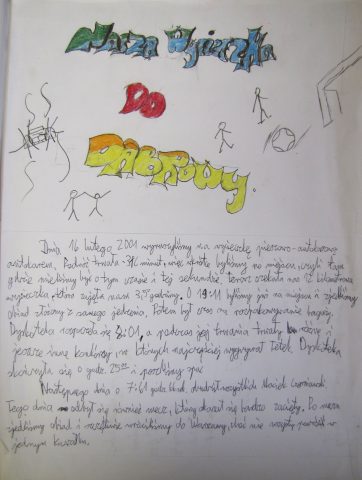 Nasza Wycieczka
Do
Dąbrowy.
Dnia 16 lutego, 2001 wyruszyliśmy na wycieczkę pieszo-autobusową
autokarem. Podróż trwała minut, więc byliśmy na miejscu, czyli tam
gdzie mieliśmy być o tym czasie i tej sekundzie, teraz czekała na 12 kilometrowa
wycieczka, która zajęła nam 3,5 godziny. O 19:11 byliśmy już na miejscu i zjedliśmy
obiad złożony z samego jedzenia. Potem był czas na rozpakowywanie bagaży.
Dyskoteka rozpoczęła się 01, a podczas jej trwania trwały i
jeszcze inne konkursy, na których najczęściej wygrywał Tetek. Dyskoteka
skończyła się o godz. 25:00 i poszliśmy spać
Następnego dnia o 7:61 wszystkich Maciek
Tego dnia odbył się również mecz, który okazał się bardzo zacięty. Po meczu
zjedliśmy obiad i szczęśliwie wróciliśmy do Warszawy, choć nie wszyscy powrócili w
jednym kawałku.